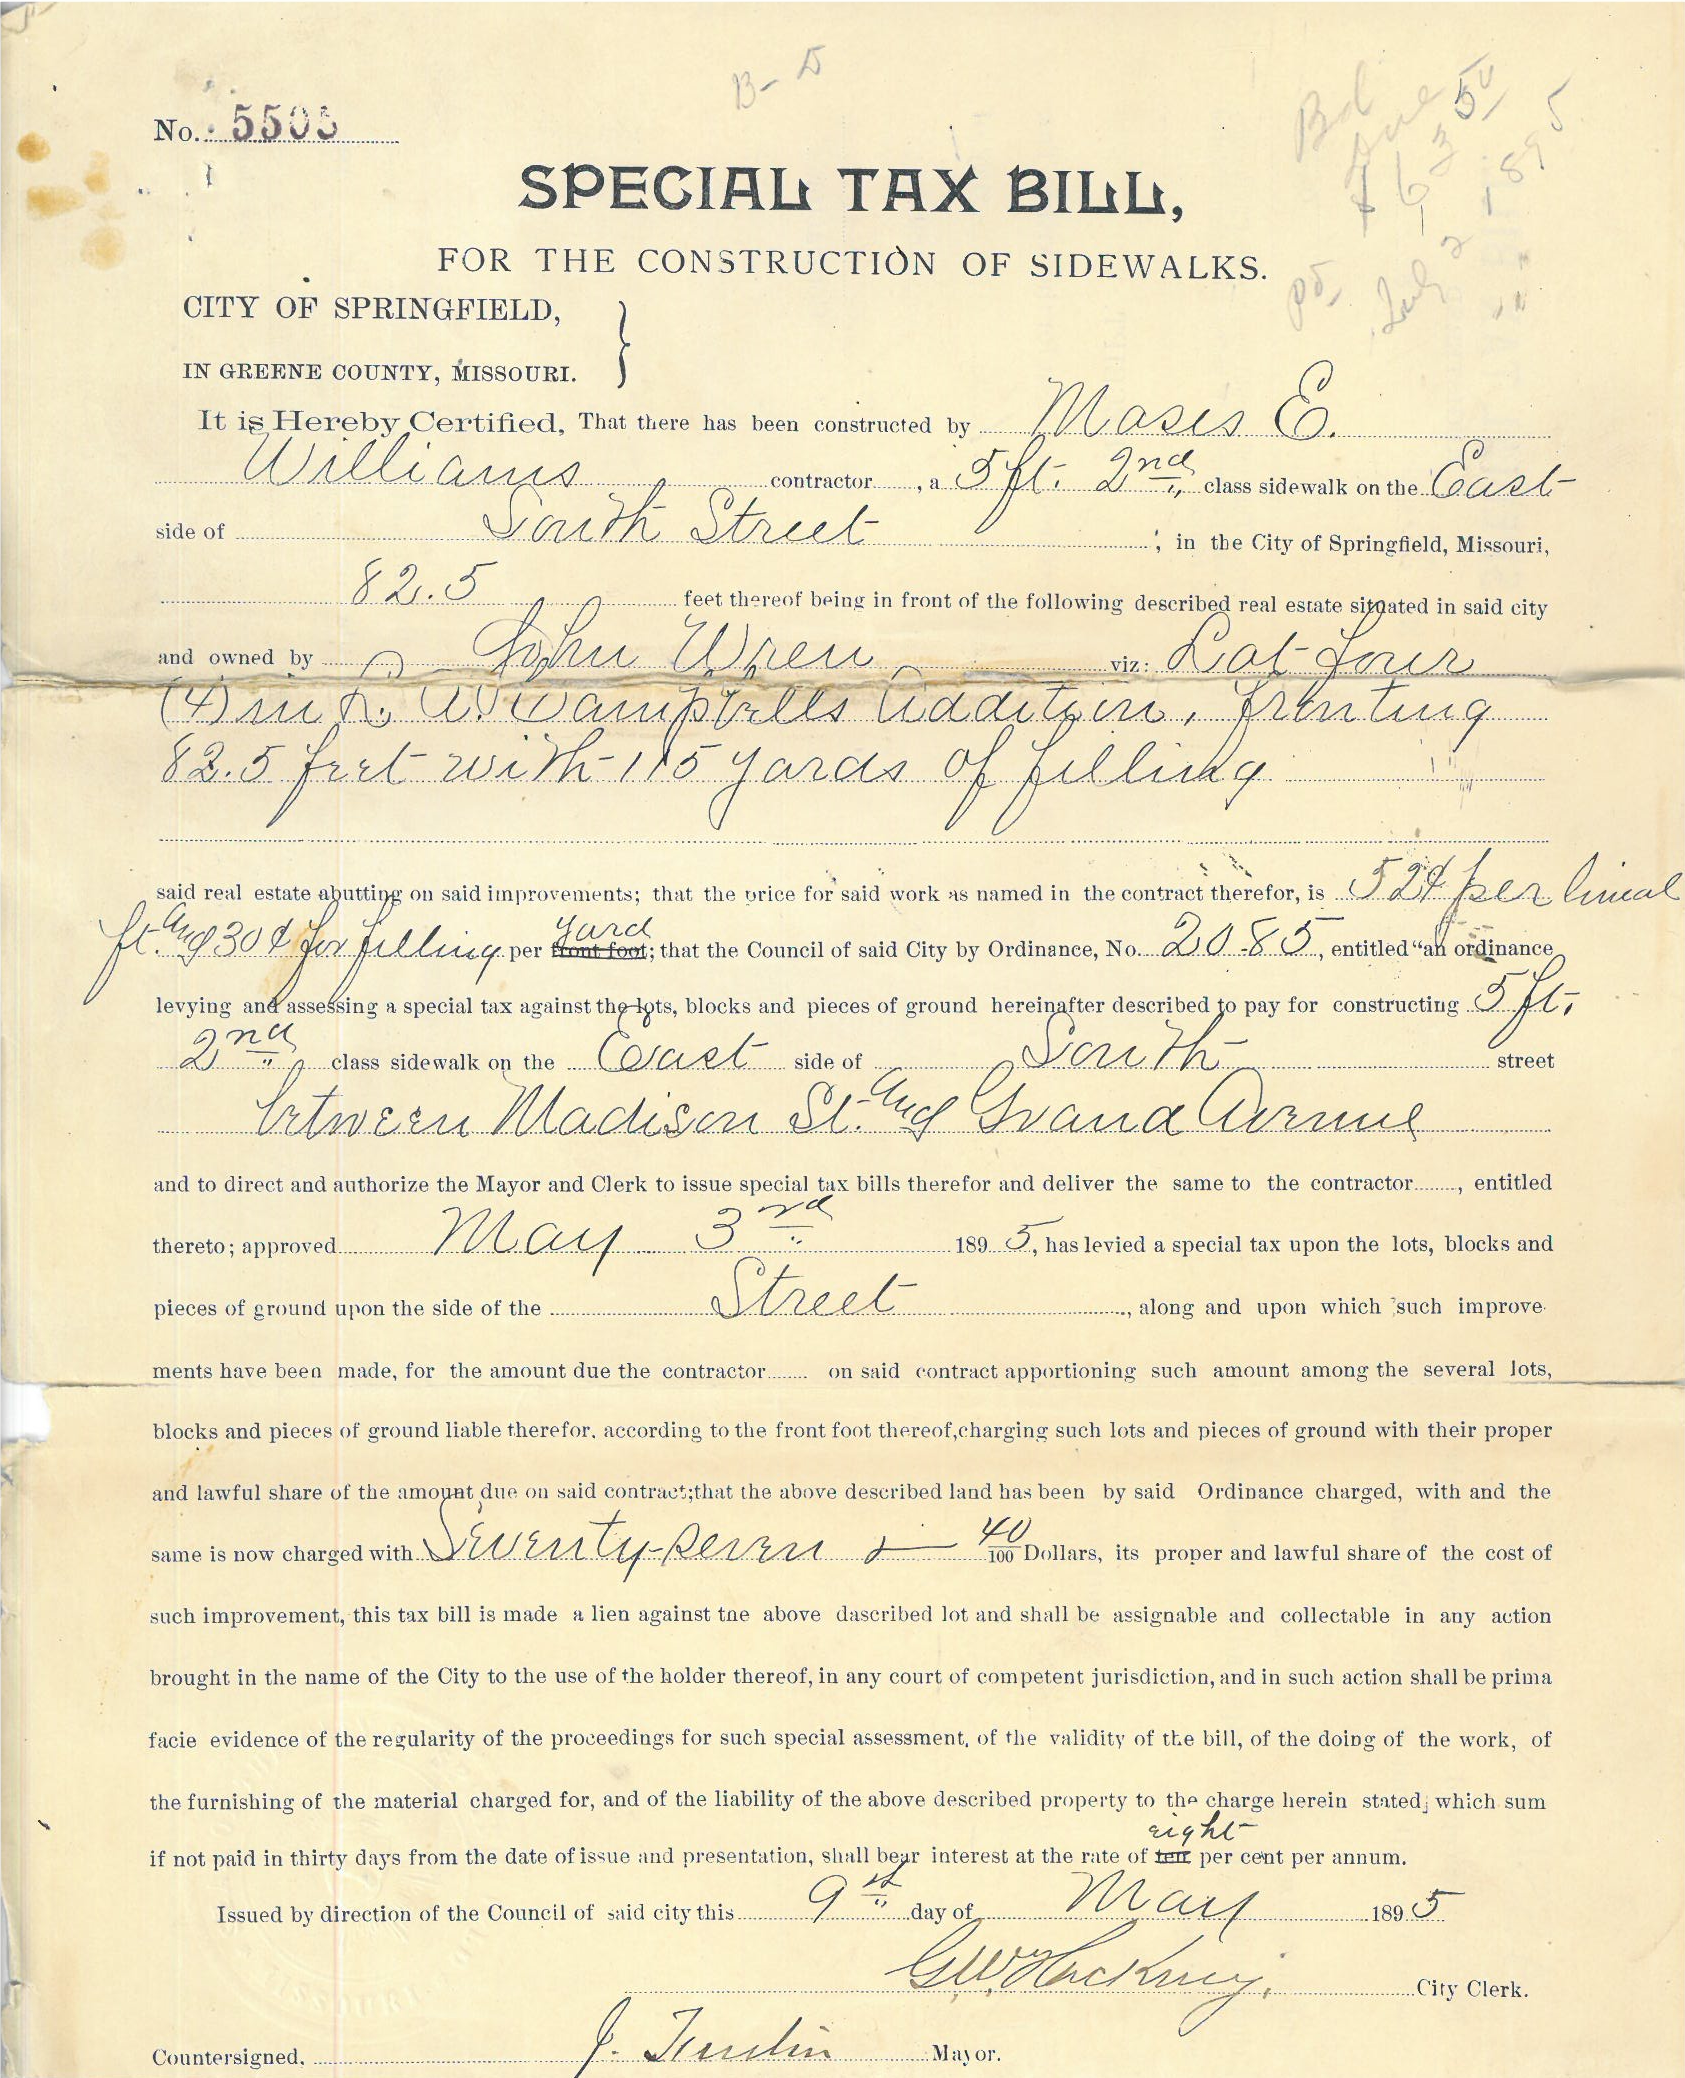 B- 5
No. 5505
Bal
due 50
$ 63
pd. July 2 1895
SPECIAL TAX BILL,
FOR THE CONSTRUCTION OF SIDEWALKS.
CITY OF SPRINGFIELD,
IN GREENE COUNTY, MISSOURI.
It is Hereby Certified, That there has been constructed by Moses E.
Williams contractor , a 5 ft. 2nd class sidewalk on the East
side of South Street ; in the City of Springfield, Missouri,
82.5 feet thereof being in front of the following described real estate situated in said city
and owned by John Wren viz: Lot four
(4) in R. A. Campbells Addition, fronting
82.5 feet with 115 yards of filling
said real estate abutting on said improvements; that the price for said work as named in the contract therefor, is 52¢ per lineal
ft. and 30¢ for filling per front foot yard; that the Council of said City by Ordinance, No. 2085, entitled "an ordinance
levying and assessing a special tax against the lots, blocks and pieces of ground hereinafter described to pay for constructing 5 ft.
2nd class sidewalk on the East side of South street
between Madison St. and Grand Avenue
and to direct and authorize the Mayor and Clerk to issue special tax bills therefor and deliver the same to the contractor , entitled
thereto; approved May 3rd 1895, has levied a special tax upon the lots, blocks and
pieces of ground upon the side of the Street , along and upon which such improve-
ments have been made, for the amount due the contractor on said contract apportioning such amount among the several lots,
blocks and pieces of ground liable therefor, according to the front foot thereof, charging such lots and pieces of ground with their proper
and lawful share of the amount due on said contract; that the above described land has been by said Ordinance charged, with and the
same is now charged with Seventy-seven & 40/100 Dollars, its proper and lawful share of the cost of
such improvement, this tax bill is made a lien against tne above dascribed lot and shall be assignable and collectable in any action
brought in the name of the City to the use of the holder thereof, in any court of competent jurisdiction, and in such action shall be prima
facie evidence of the regularity of the proceedings for such special assessment, of the validity of the bill, of the doing of the work, of
the furnishing of the material charged for, and of the liability of the above described property to the charge herein stated; which sum
if not paid in thirty days from the date of issue and presentation, shall bear interest at the rate of ten eight per cent per annum.
Issued by direction of the Council of said city this 9th day of May 1895
G.W. Hackney, City Clerk.
Countersigned, J. Mayor.